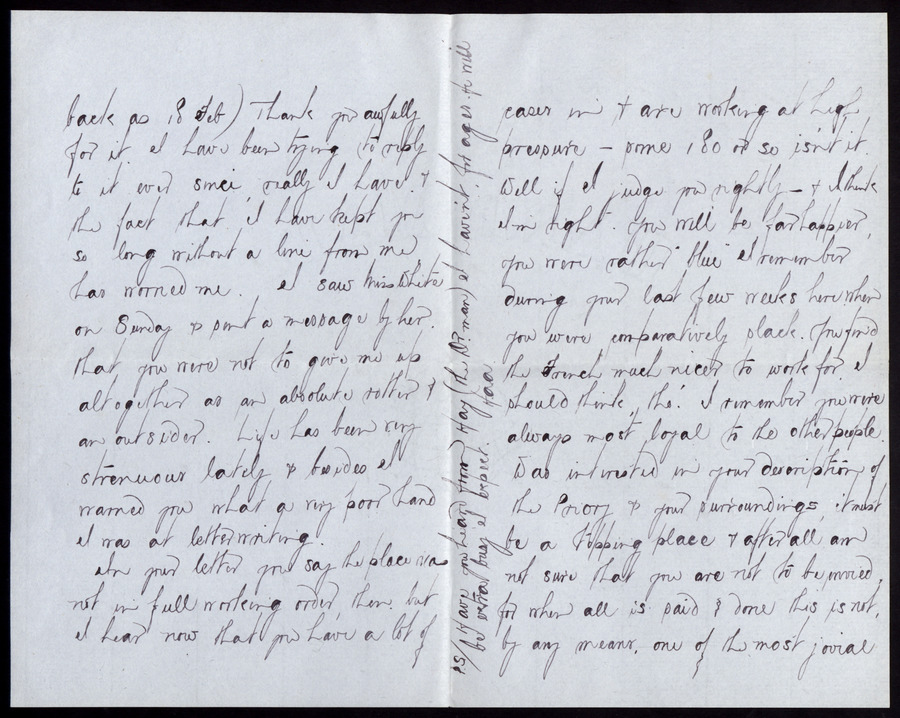 back as 18 Feb) Thank you awfully
for it. I have been trying to reply
to it ever since, really I have. &
the fact that I have kept you
so long without a line from me
has worried me. I saw Miss White
on Sunday & sent a message by her.
that you were not to give me up
altogether as an absolute rotter &
an outsider. Life has been very
strenuous lately & besides I
warned you what a very poor hand
I was at letterwriting.
In your letter you say the place was
not in full working order, then. but
I hear now that you have a lot of
P.S/ Have you heard from Hay (the Dr. man) I havint. for ages. he will
be extra busy I expect.
cases in & are working at high
pressure – some 180 or so isn't it.
Well if I judge you rightly – & I think
I'm right. you will be far happier,
you were rather "blue" I remember
during your last few weeks here when
you were comparatively slack. You find
the French much nicer to work for I
should think, tho'. I remember you were
always most loyal to the other people.
Was interested in your description of
the Priory & your surroundings, it must
be a topping place & after all am
not sure that you are not to be envied,
for when all is said & done this is not,
by any means, one of the most jovial